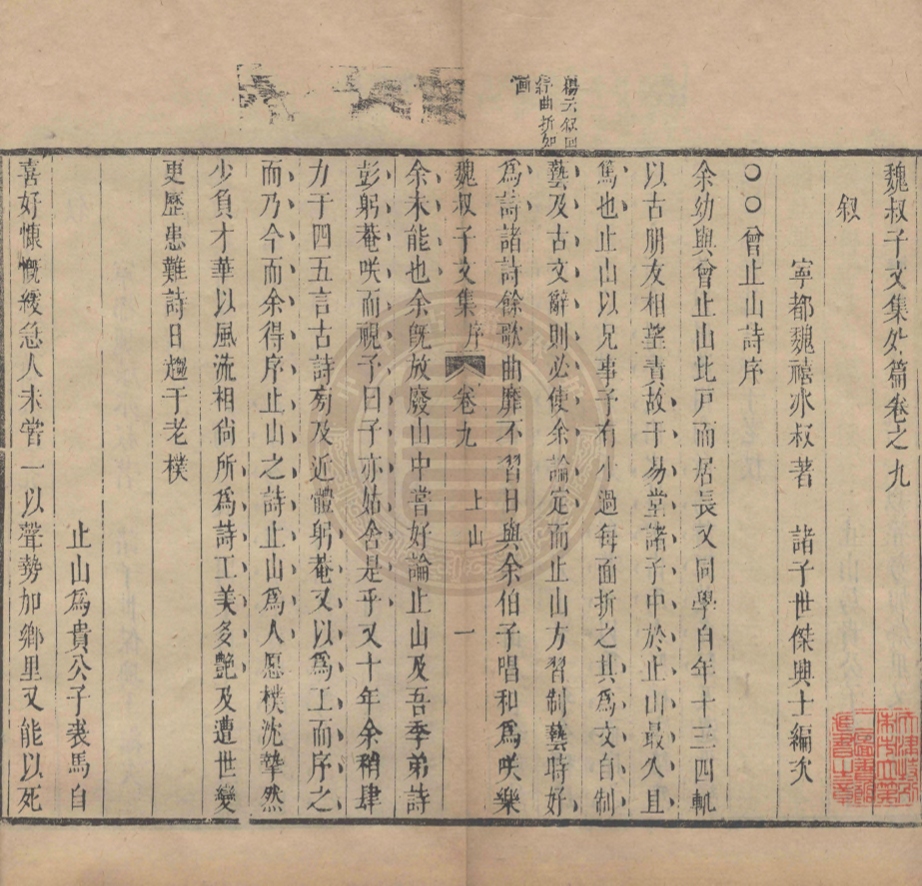 魏叔子文集外篇卷之九
敘
寧都魏禧冰叔著　諸子世傑興士編次
○○曾止山詩序
余幼與曾止山比戸而居長又同學自年十三四軋
以古朋友相望責故于易堂諸子中於止山最久且
篤也止山以兄事予有小過每面折之其為文自制
藝及古文辭則必使余論定而止山方習制藝時好
為詩諸詩餘歌曲靡不習日與余伯子唱和為咲樂
魏叔子文集　序　卷九　上山　一
余未能也余旣放廢山中嘗好論止山及吾季弟詩
彭躬菴咲而視予曰子亦姑舍是乎又十年余稍肆
力于四五言古詩旁及近體躬菴又以為工而序之
而乃今而余得序止山之詩止山為人愿樸沈摯然
少負才華以風流相尚所為詩工美多艶及遭世變
更歷患難詩日趨于老樸
止山為貴公子裘馬自
喜好慷慨緩急人未嘗一以聲勢加鄉里又能以死